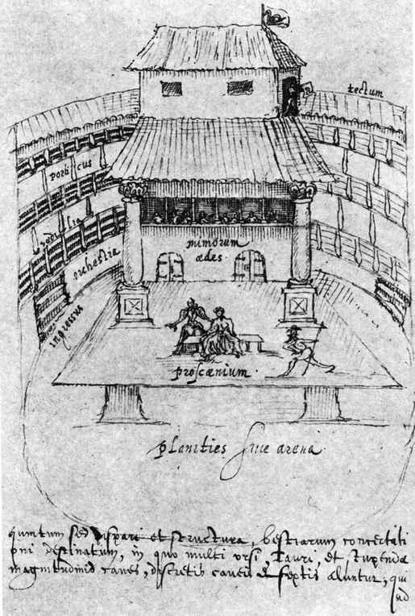 tectum
porticus
sedilia
orchestra
mimorum
ædes
ingressus
proscænium
planities siue arena
quntum sed dispari et structura, bestiarum concertati
oni destinatum, in quo multi vrsi, Tauri, et stupendæ
magnitudinis canes, discretis caueis & septis aluntur, qui
ad